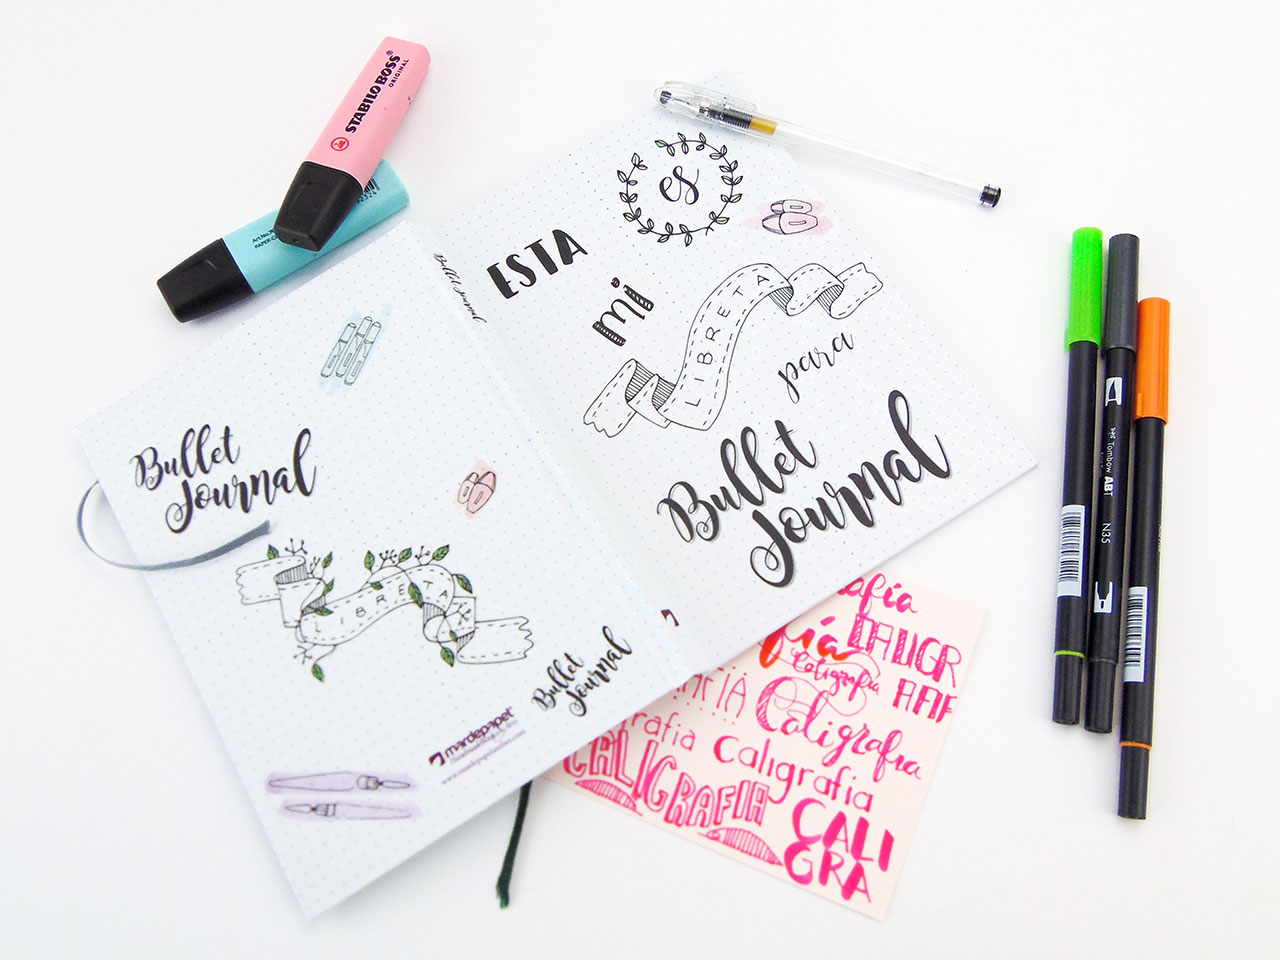 STABILO BOSS®
ORIGINAL
es
ESTA
mi
LIBRETA
para
Bullet
Journal
Bullet Journal
Bullet
Journal
LIBRETA
Bullet
Journal
mardepapel
Tombow ABT
N35
CALIGR
Caligrafia
AFIF
Caligrafia
caligrafia
CALIGRAFIA
CALI
GRA